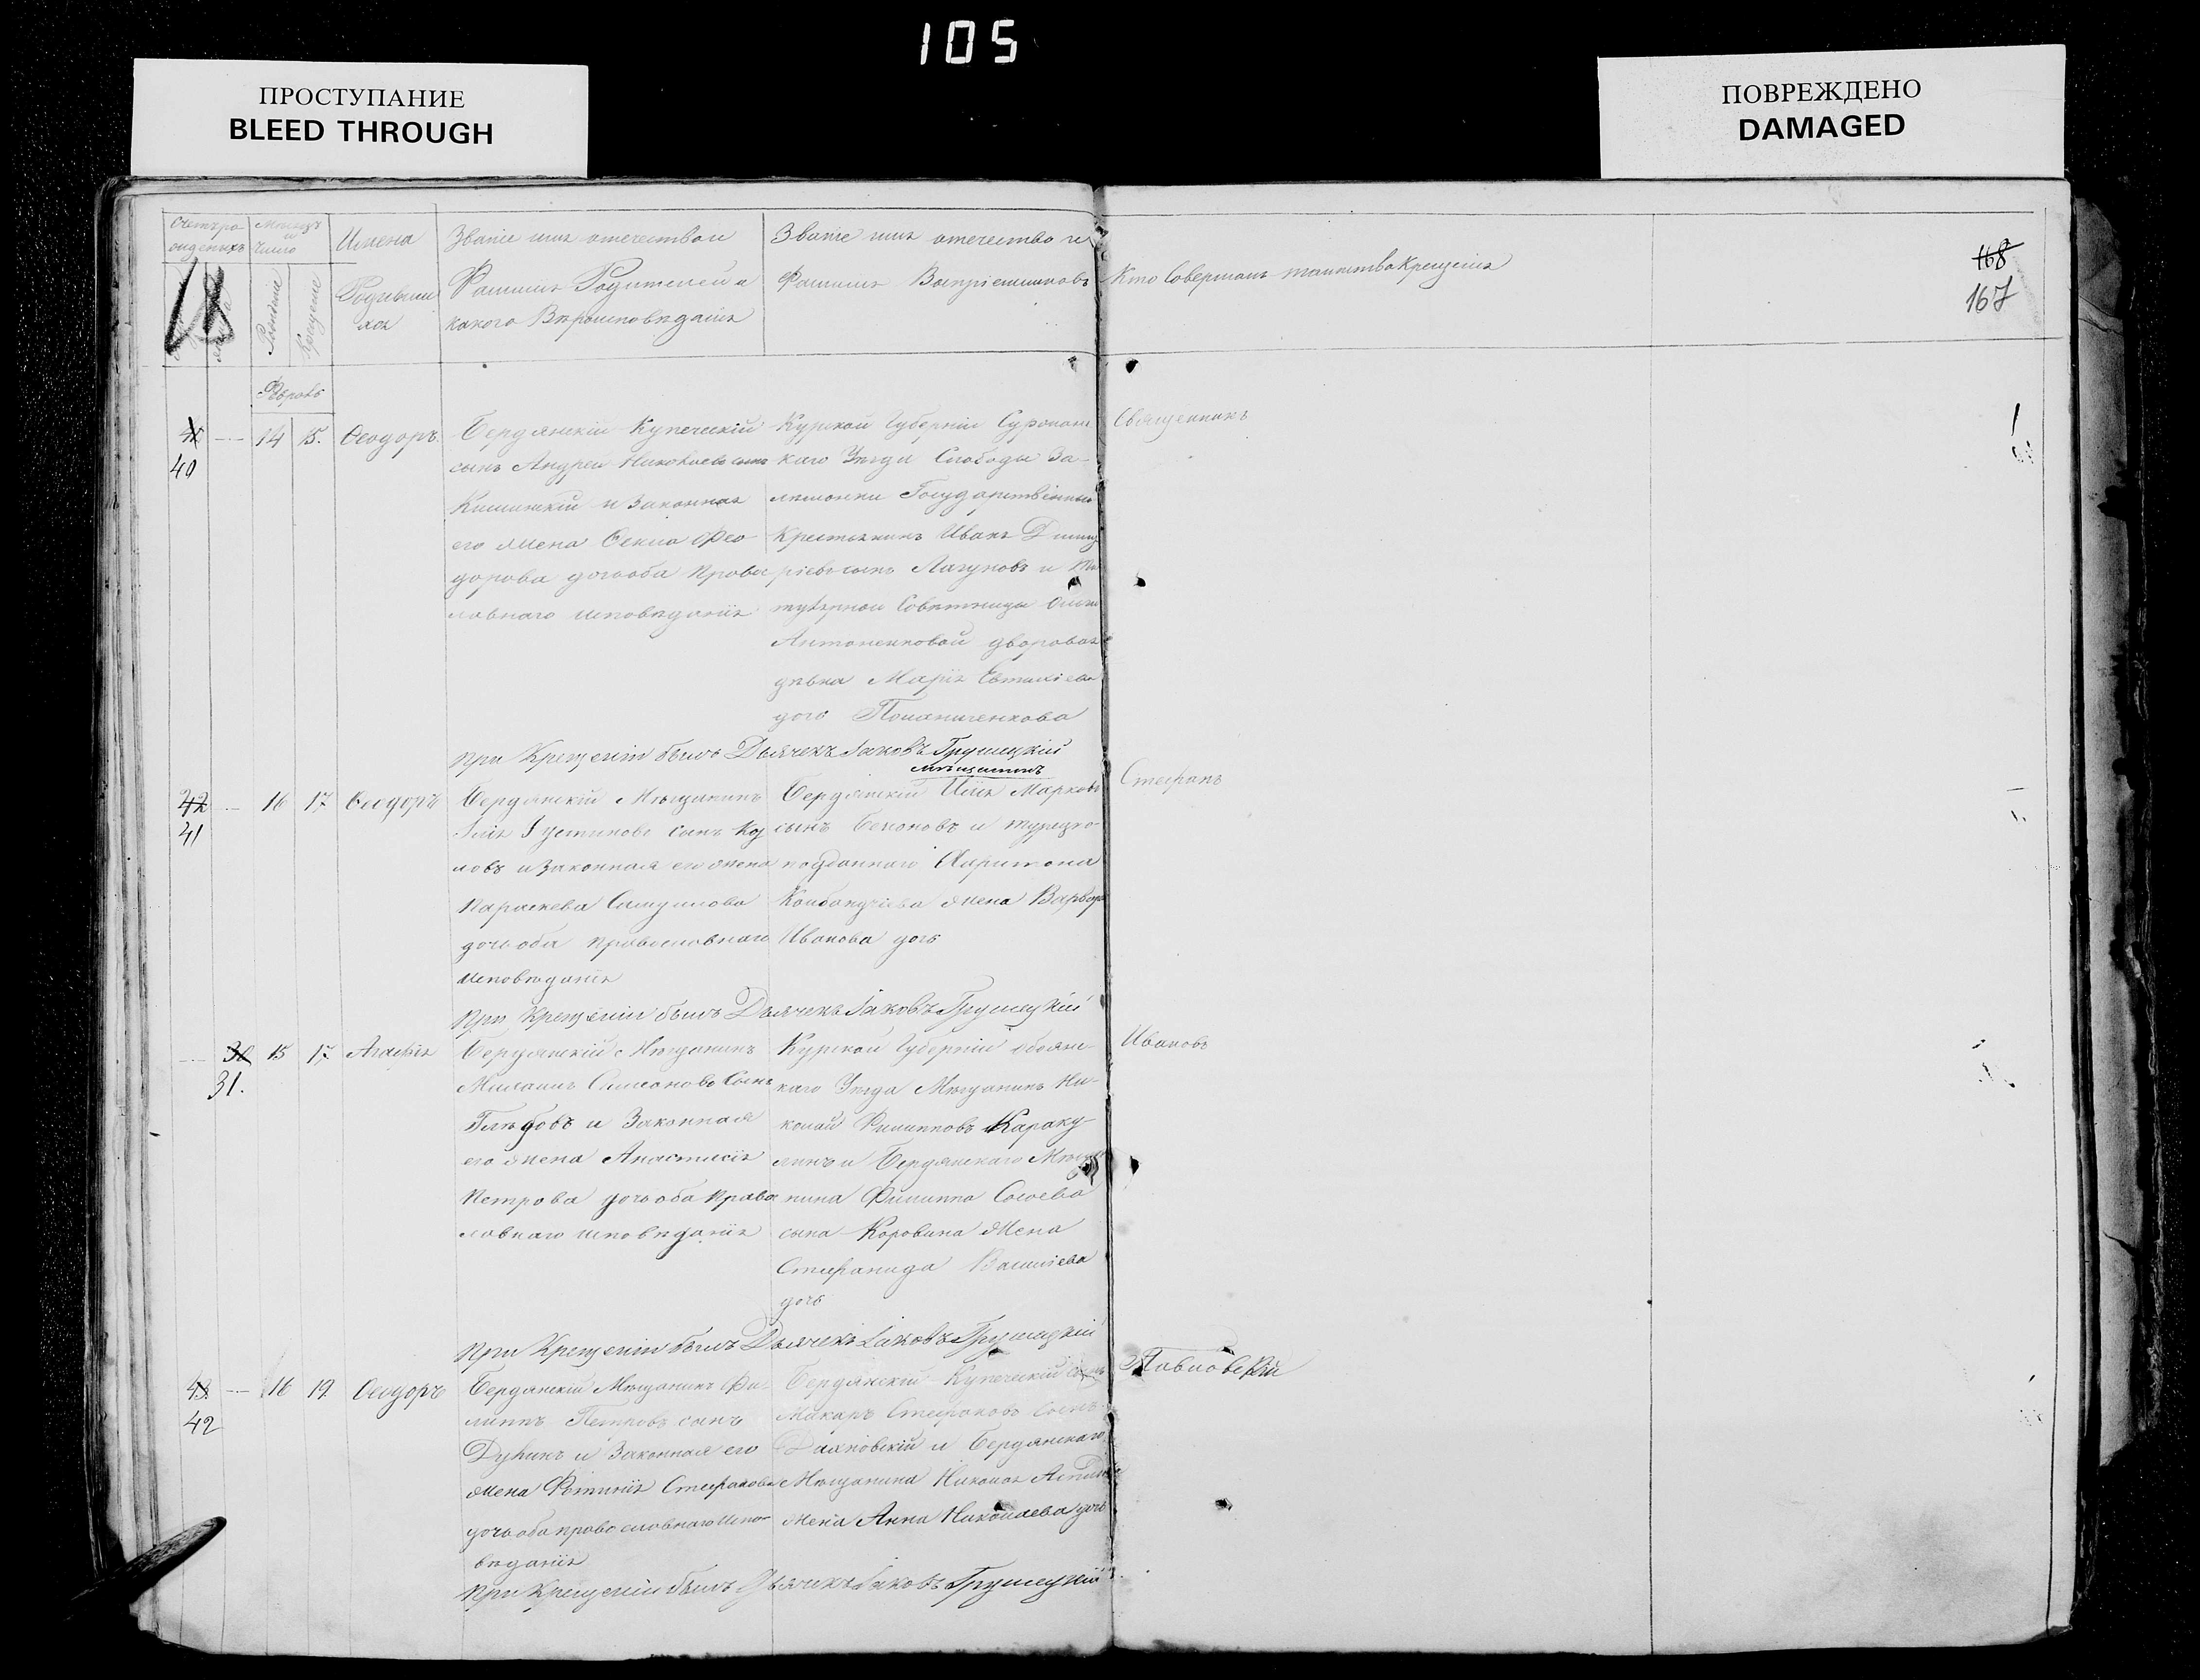 105
ПРОСТУПАНИЕ
BLEED THROUGH
ПОВРЕЖДЕНО
DAMAGED
168
167
Счетъ ро-
Мѣсяцъ
и
Число
Имена
Родивши
хся
Рожденiя
Крещенiя
Званiе имя отечество и
Фамилiя Родителей и
какого Вѣроисповѣданiя
Званiе имя отечество и
Фамилiя Воспрiемниковъ
Кто Совершалъ таинство Крещенiя
40
14 15. Ѳеодоръ
Бердянскiй Купеческiй
сынъ Андрей Николаевъ сынъ
и Законная
его жена Ѳекла Ѳео
дорова дочь оба Право
славнаго исповѣданiя
Курской Губернiи
каго Уѣзда Слободы За-
Государственный
Крестьянинъ Иванъ Димит
рiевъ сынъ Лагуновъ и Ти
тулярной Совѣтницы
Антоненковой дворовая
дѣвка Марiя
дочь
Священникъ
При Крещенiи былъ Дьячекъ Iаковъ Грушецкiй
мѣщанинъ
42
41
16 17 Ѳеодоръ
Бердянскiй Мѣщанинъ
Iустиновъ сынъ Коз
ловъ и Законная его жена
Параскева Самуилова
дочь оба православнаго
исповѣданiя
Бердянскiй Илья Марковъ
сынъ и турецко-
подданнаго Харитона
жена Варвара
Иванова дочь
Стефанъ
При Крещенiи былъ Дьячекъ Iаковъ Грушецкiй
30
31.
15 17 Агафiя
Бердянскiй Мѣщанинъ
Михаилъ Симеоновъ Сынъ
Глѣбовъ и Законная
его жена Анастасiя
Петрова дочь оба Право
славнаго исповѣданiя
Курской Губернiи Обоянс-
каго Уѣзда Мѣщанинъ Ни-
колай Филипповъ Караку-
линъ и Бердянскаго Мѣща
нина Филиппа
сына Коровина жена
Стефанида Василiева
дочь
Ивановъ
При Крещенiи былъ Дьячекъ Iаковъ Грушецкiй
43
42
16 19 Ѳеодоръ
Бердянскiй Мѣщанинъ Фи-
липпъ сынъ
и Законная его
жена Фотинiя Стефанова
дочь оба православнаго Испо-
вѣданiя
Бердянскiй Купеческiй сынъ
Макаръ Стефановъ Сынъ
и Бердянскаго
Мѣщанина Николая
жена Анна Николаева дочь
Павловскiй
При Крещенiи былъ Дьячекъ Iаковъ Грушецкiй